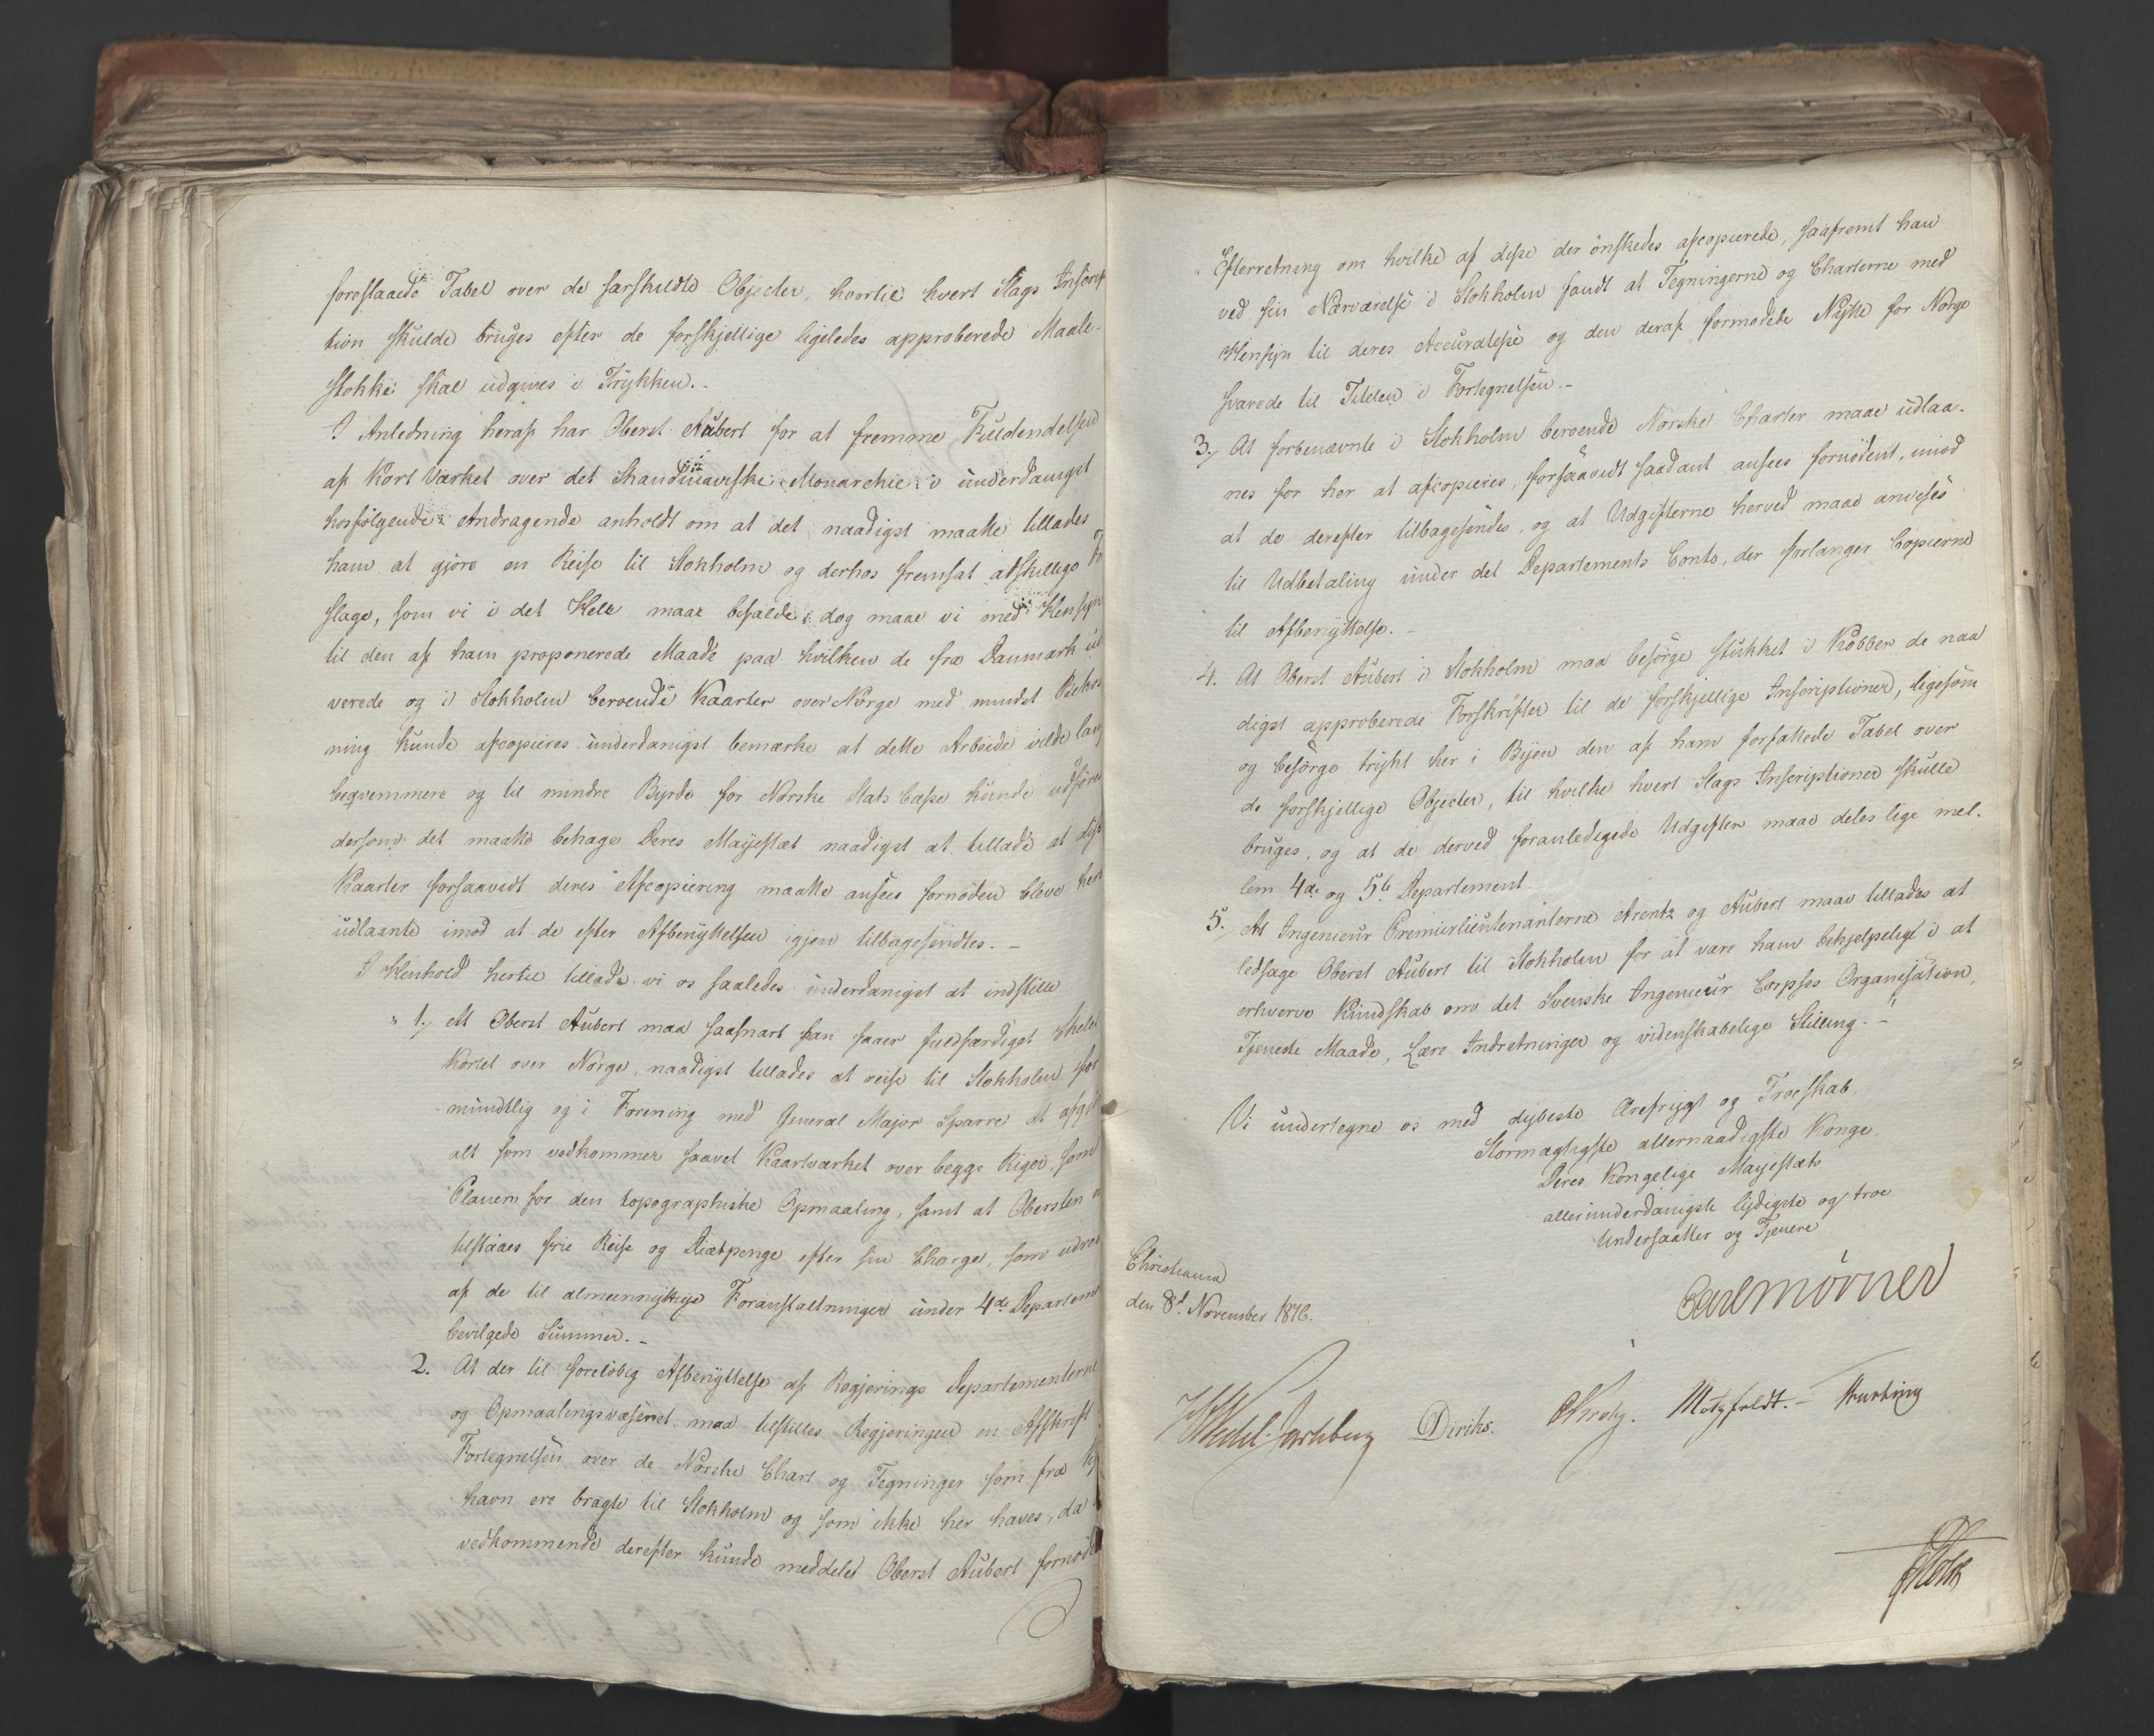 foreslaaede Tabel over de særskildte Objecter, hvortil hvert Slags Inscrip
tion skulde bruges efter de forskjellige ligeledes approberede Maale-
stokke skal udgives i Trykken.-
I Anledning heraf har Oberst Aubert for at fremme Fuldendelsen
af Kort Værket over det Skandinaviske Monarchie i underdanigst
hosfølgende Andragende anholdt om at det naadigst maatte tillades
ham at gjøre en Reise til Stokholm og derhos fremsat adskillige
slage, som vi i det Hele maae bifalde, dog maae vi med Hensyn
til den af ham proponerede Maade paa hvilken de fra Danmark
verede og i Stokholm beroende Kaarter over Norge med mindst Bekos
ning kunde afcopieres underdanigst bemærke at dette Arbeide vilde lan
beqvemmere og til mindre Byrde for Norske Stats Casse kunde udføres
dersom det maatte behage Deres Majestæt naadigst at tillade at disse
Kaarter forsaavidt deres Afcopiering maatte ansees fornøden bleve
udlaante imod at de efter Afbenyttelsen igjen tilbagesendtes.-
I Henhold hertil tillade vi os saaledes underdanigst at indstille
1, At Oberst Aubert maa saasnart han faaer fuldfærdiget
Kortet over Norge, naadigst tillades at reise til Stokholm for
mundtlig og i Forening med General Major Sparre at afgi
alt som vedkommer saavel Kaartværket over begge Riger, som
Planen for den topographiske Opmaaling, samt at Obersten
tilstaaes frie Reise og Diætpenge efter sin Charge, som udre
af de til almeennyttige Foranstaltninger under 4de Departem
bevilgede Summer.-
2. At der til foreløbig Afbenyttelse af Regjerings Departementerne
og Opmaalingsvæsenet maa tilstilles Regjeringen en Afskrift
Fortegnelsen over de Norske Chart og Tegninger som fra
havn ere bragte til Stokholm og som ikke her haves, da
vedkommende derefter kunde meddele Oberst Aubert fornød
Efterretning om hvilke af disse der ønskedes afcopierede, saafremt han
ved sin Nærværelse i Stokholm fandt at Tegningerne og Charterne med
Hensyn til deres Accuratesse og den deraf formodede Nytte for Norge
svarede til Titelen i Fortegnelsen.-
3, At forbenævnte i Stokholm beroende Norske Charter maae udlaa-
nes for her at afcopieres, forsaavidt saadant ansees fornødent, imod
at de derefter tilbagesendes, og at Udgifterne herved maae anvises
til Udbetaling under det Departements Conto, der forlanger Copierne
til Afbenyttelse.-
4. At Oberst Aubert i Stokholm maa besørge stukket i Kobber de naa
digst approberede Forskrifter til de forskjellige Inscriptioner, ligesom
og besørge trykt her i Byen den af ham forfattede Tabel over
de forskjellige Objecter, til hvilke hvert Slags Inscriptioner skulle
bruges, og at de derved foranledigede Udgifter maae deles lige mel-
lem 4de og 5te Departement.
5, At Ingenieur Premierlieutenanterne Arentz og Aubert maae tillades at
ledsage Oberst Aubert til Stokholm for at være ham behjelpeligt i at
erhverve Kundskab om det Svenske Ingenieur Corpses Organisation,
Tjeneste Maade, Lære Indretninger og videnskabelige Stilling.-
Vi undertegne os med dybeste Ærefrygt og Troeskab.
Stormægtigste allernaadigste Konge
Deres Kongelige Majestæts
allerunderdanigste lydigste og troe
Undersaatter og Tjenere
Christiania
den 8d November 1816.
Carl Mörner
HWedel Jarlsberg Diriks. CKrohg. Motzfeldt.-
Holst